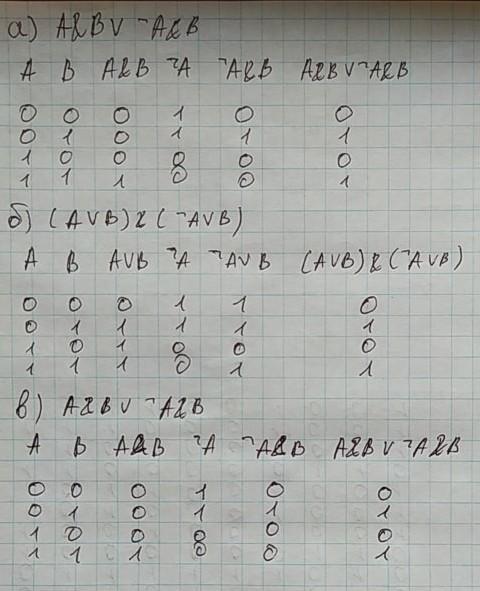 а) A&B∨ ¬A&B
A B A&B ¬A ¬A&B A&B∨¬A&B
0 0 0 1 0 0
0 1 0 1 1 1
1 0 0 0 0 0
1 1 1 0 0 1
б) (A∨B)&(¬A∨B)
A B A∨B ¬A ¬A∨B (A∨B)&(¬A∨B)
0 0 0 1 1 0
0 1 1 1 1 1
1 0 1 0 0 0
1 1 1 0 1 1
в) A&B∨ ¬A&B
A B A&B ¬A ¬A&B A&B∨¬A&B
0 0 0 1 0 0
0 1 0 1 1 1
1 0 0 0 0 0
1 1 1 0 0 1